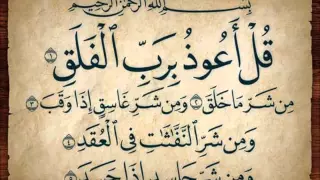 بِسْمِ ٱللَّهِ ٱلرَّحْمَٰنِ ٱلرَّحِيمِ
قُلْ أَعُوذُ بِرَبِّ ٱلْفَلَقِ ١
مِن شَرِّ مَا خَلَقَ ٢ وَمِن شَرِّ غَاسِقٍ إِذَا وَقَبَ ٣
وَمِن شَرِّ ٱلنَّفَّٰثَٰتِ فِى ٱلْعُقَدِ ٤
وَمِن شَرِّ حَاسِدٍ إِذَا حَسَدَ